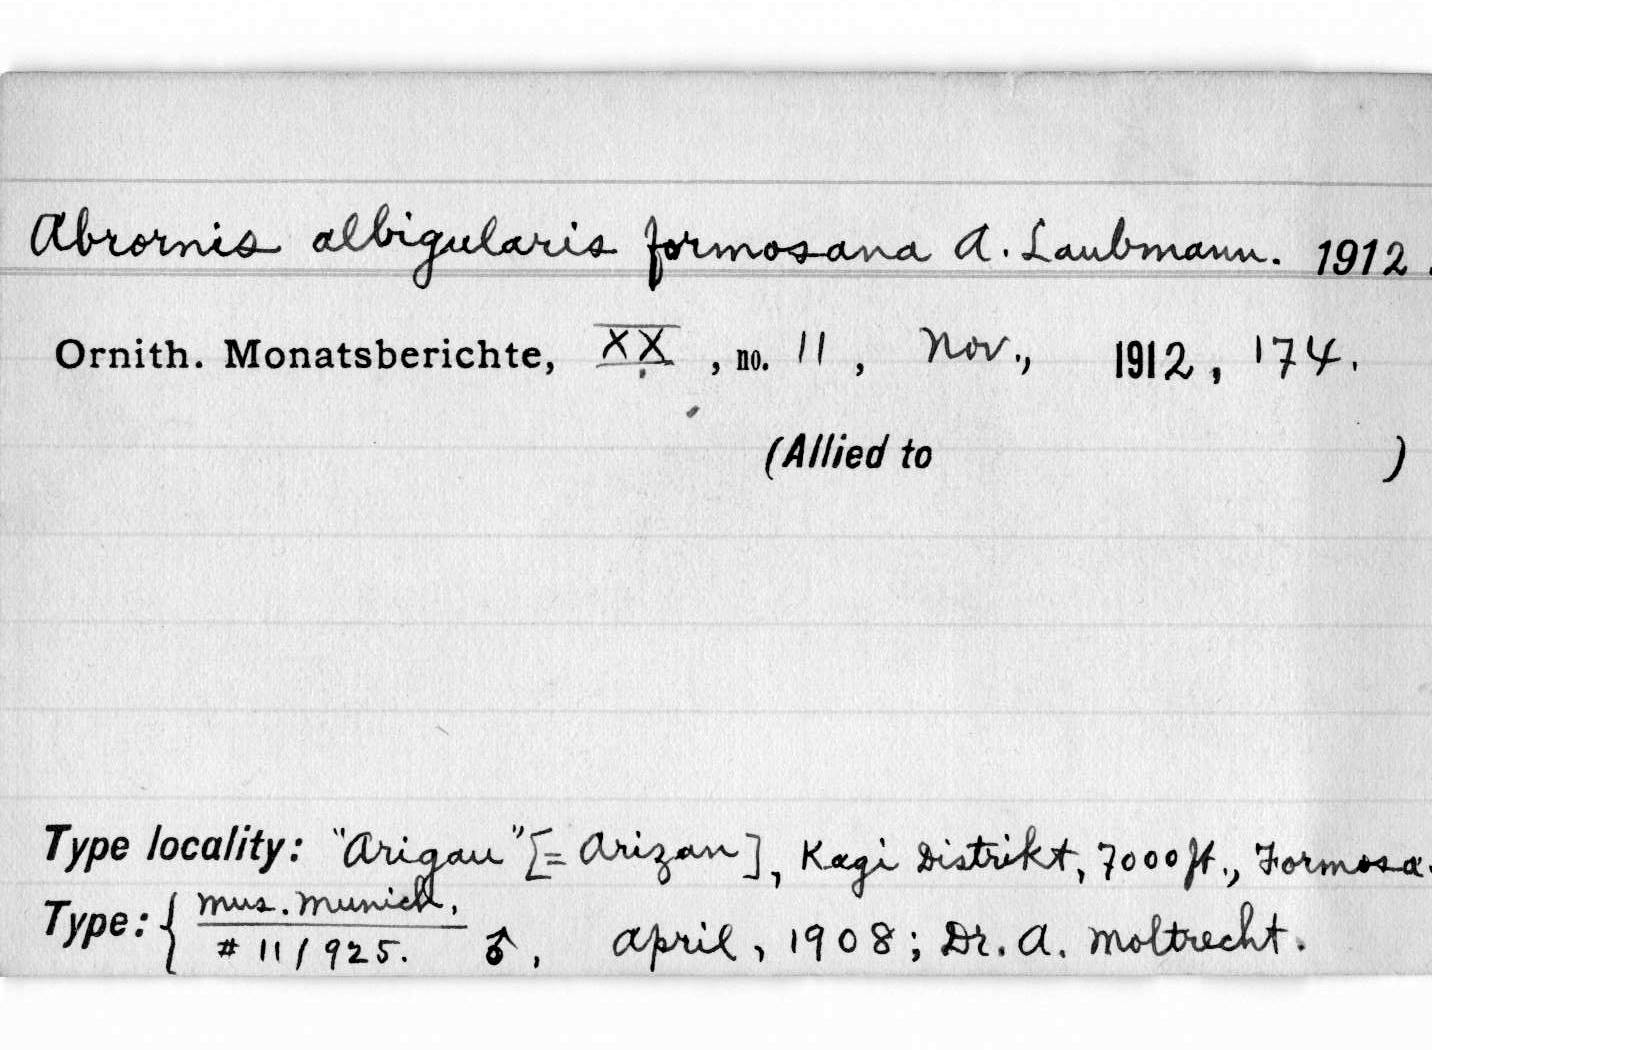 Abrornis albigularis formosana A. Laubmann. 1912.
Ornith. Monatsberichte, XX, no. 11, Nov., 1912, 174.
(Allied to )
Type locality: "Arigau" [= Arizan], Kagi Distrikt, 7000 ft., Formosa.
Type: { Mus. Munich.
# 11/925. ♂, April, 1908; Dr. A. Moltrecht.